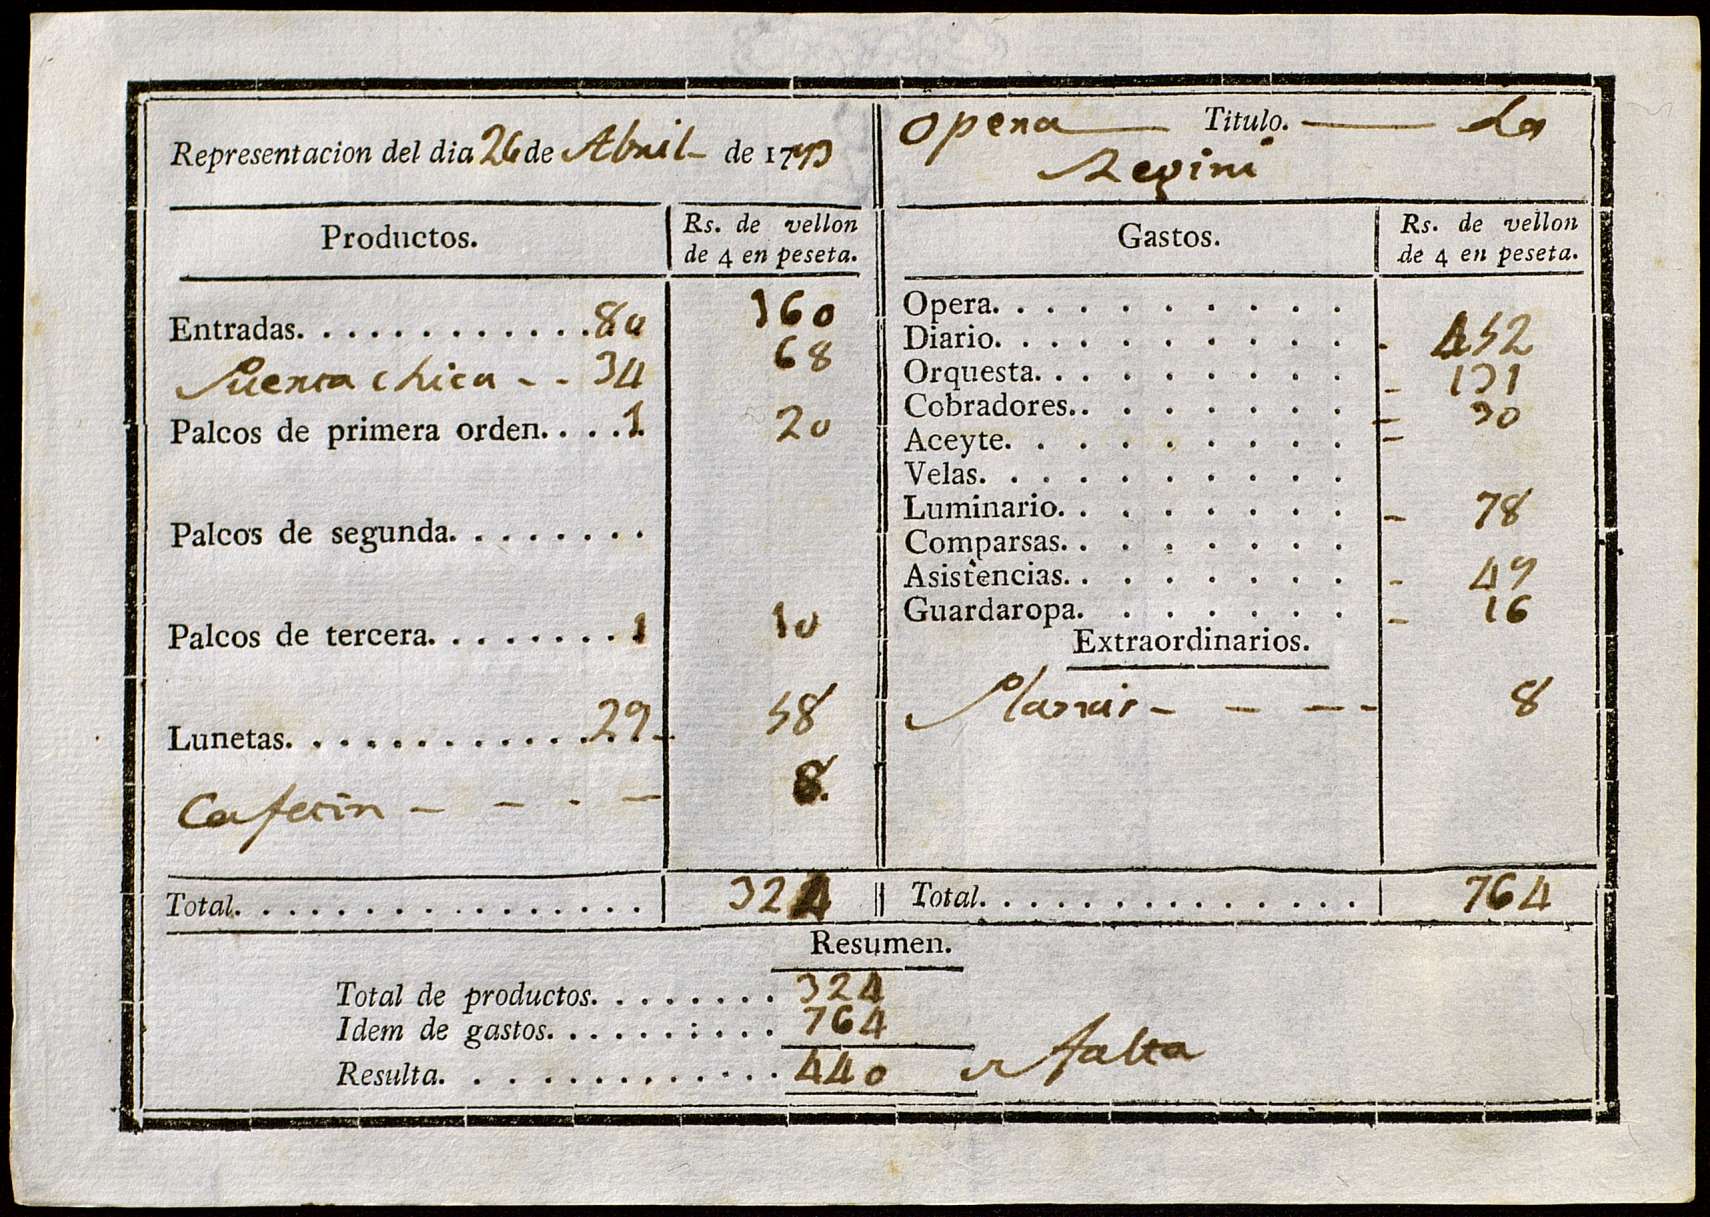 Representacion del dia 26 de Abril de 1793
Opera Titulo. La
Regini
Productos. Rs. de vellon
de 4 en peseta.
Entradas. . . . . . . . . . . . 80 160
Puerta chica - - 34 68
Palcos de primera orden. . . . . 1 20
Palcos de segunda. . . . . . . .
Palcos de tercera. . . . . . . . 1 10
Lunetas. . . . . . . . . . . . . 29 58
Cafetin - - - - 8.
Total. . . . . . . . . . . . . . . . 324
Gastos. Rs. de vellon
de 4 en peseta.
Opera. . . . . . . . . . .
Diario. . . . . . . . . . . 452
Orquesta. . . . . . . . . . 131
Cobradores. . . . . . . . . 30
Aceyte. . . . . . . . . .
Velas. . . . . . . . . . .
Luminario. . . . . . . . . 78
Comparsas. . . . . . . . .
Asistencias. . . . . . . . . 49
Guardaropa. . . . . . . . 16
Extraordinarios.
- - - - 8
Total. . . . . . . . . . . . . . . 764
Resumen.
Total de productos. . . . . . . . 324
Idem de gastos. . . . . . : . . . 764
Resulta. . . . . . . . . . . . . 440 falta